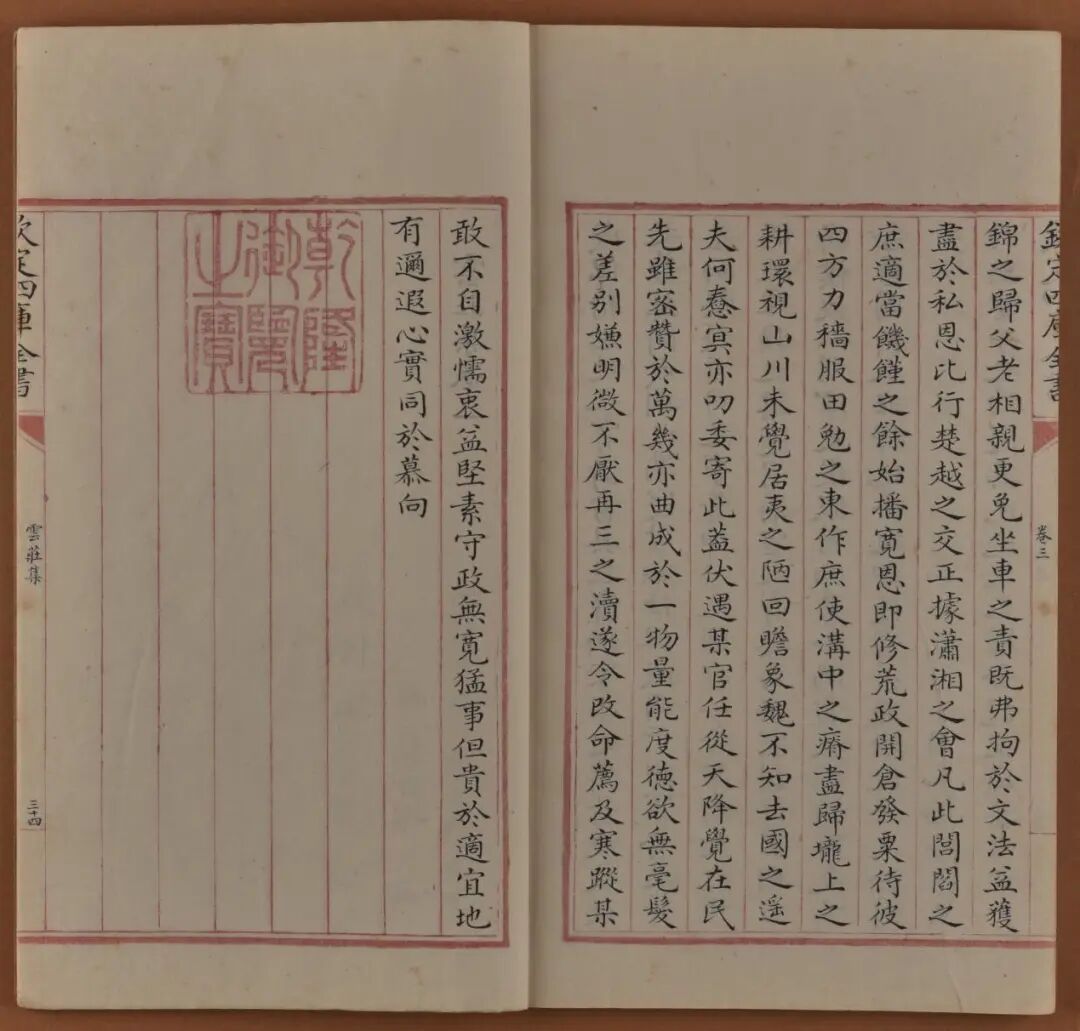 欽定四庫全書
卷三
錦之歸父老相親更免坐車之責既弗拘於文法益獲
盡於私恩比行楚越之交正據瀟湘之會凡此閭閻之
庶適當饑饉之餘始播寛恩即修荒政開倉發粟待彼
四方力穡服田勉之東作庶使溝中之瘠盡歸壠上之
耕環視山川未覺居夷之陋回瞻象魏不知去國之遥
夫何惷㝠亦叨委寄此蓋伏遇某官任從天降覺在民
先雖密贊於萬幾亦曲成於一物量能度德欲無毫髮
之差别嫌明微不厭再三之瀆遂令改命薦及寒蹤某
敢不自激懦衷益堅素守政無寛猛事但貴於適宜地
有邇遐心實同於慕向
乾隆御覽之寶
欽定四庫全書
雲莊集
三十四